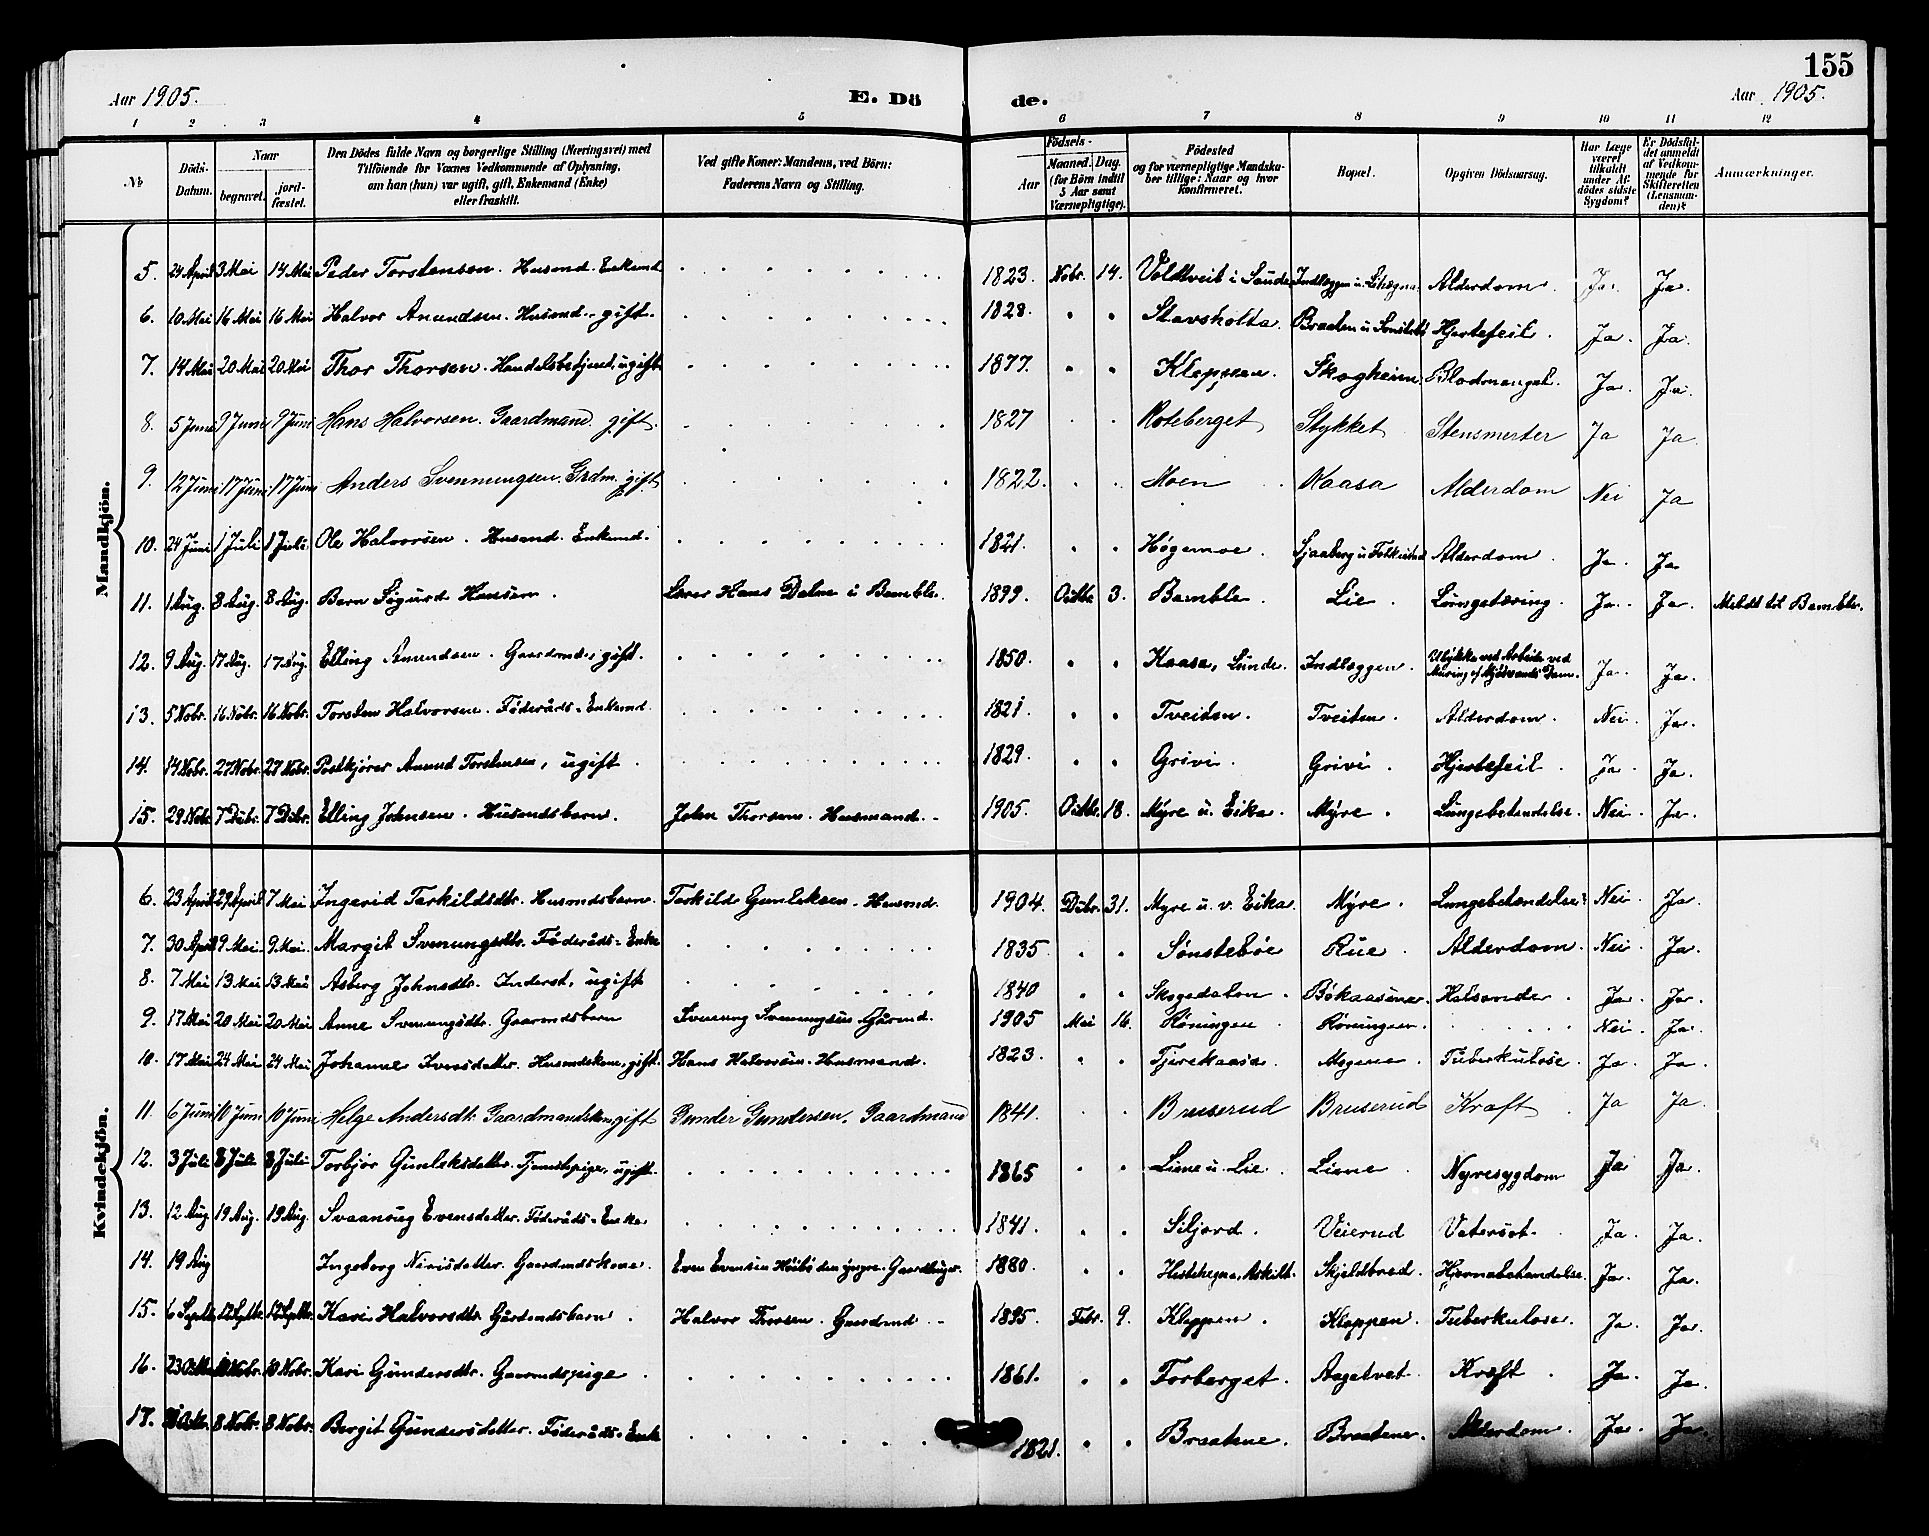 155
Aar 1905. E. Dö de. Aar 1905.
1 2 3 4 5 6 7 8 9 10 11 12
№
Döds-Datum.
Naar
begravet.
jord-fæstet.
Den Dödes fulde Navn og borgerlige Stilling (Næringsvei) med
Tilföiende for Voxnes Vedkommende af Oplysning,
om han (hun) var ugift, gift, Enkemand (Enke)
eller fraskilt.
Ved gifte Koner: Mandens, ved Börn:
Faderens Navn og Stilling.
Födsels-
Aar
Maaned. Dag.
(for Börn indtil
5 Aar samt
Værnepligtige).
Födested
og for værnepligtige Mandska-
ber tillige: Naar og hvor
konfirmeret.
Bopæl.
Opgiven Dödsaarsag.
Har Læge
været
tilkaldt
under Af-
dödes sidste
Sygdom?
Er Dödsfal-
det anmeldt
af Vedkom-
mende for
Skifteretten
(Lensman-
den)?
Anmærkninger.
Mandkjön.
5. 24 April 3 Mai 14 Mai Peder Torstensen. Husmd. Enkemd. 1823. Nobr. 14. Voldtveit i Saude Alderdom. Ja. Ja.
6. 10 Mai 16 Mai 16 Mai Halvor Anundsen. Husmd. gift. 1828. Stavsholta. Braaten u. Hjertefeil. Ja. Ja.
7. 14 Mai 20 Mai 20 Mai Thor Thorsen. Handelsbetjent, ugift. 1877. Kleppen. Skogheim. Blodmangel. Ja. Ja.
8. 5 Juni 9 Juni 9 Juni Hans Halvorsen. Gaardmand. gift. 1827 Roteberget Stykket Stensmerter Ja Ja.
9. 12 Juni 17 Juni 17 Juni Anders Svenningsen. Grdm. gift 1822. Moen Kaasa Alderdom Nei Ja
10. 24 Juni 1 Juli 1 Juli Ole Halvorsen. Husmd. Enkemd. 1821. Høgemoe. Alderdom. Ja. Ja
11. 1 Aug. 8 Aug. 8 Aug. Bern Sigurd Hansen. Lærer Hans Dalne i Bamble. 1899. Octbr 3. Bamble. Lie. Lungetæring. Ja. Ja. Meldt til Bamble.
12. 9 Aug. 17 Aug. 17 Aug. Elling Amundsen. Gaardmd., gift. 1850. Kaasa, Lunde. Indlæggen. Ulykke ved Arbeide ved
Muring af Dam. Ja. Ja.
13. 5 Nobr. 16 Nobr. 16 Nobr. Torsten Halvorsen. Føderåds-Enkemd. 1821. Tveiten. Tveiten. Alderdom. Nei. Ja.
14. 14 Nobr. 27 Nobr. 27 Nobr. Postkjører Anund Torstensen, ugift. 1829. Grivi. Grivi. Hjertefeil. Ja. Ja.
15. 29 Nobr. 7 Dcbr. 7 Dcbr. Elling Johnsen. Husmdsbarn. John Thorsen. Husmand. 1905. Octbr. 18. Myre u. Eika. Myre. Lungebetændelse. Nei. Ja.
Kvindekjön.
6. 23 April 29 April 7 Mai Ingerid Tarkildsdtr. Husmdsbarn. Tarkild Gunleksen. Husmd. 1904. Dcbr. 31. Myre u. v. Eika. Myre. Lungebetændelse Nei. Ja.
7. 30 April 9 Mai. 9 Mai. Margit Svenungsdtr. Føderåds-Enke 1835 Sønstebøe Rue. Alderdom. Nei. Ja.
8. 7 Mai 13 Mai 13 Mai Asberg Johnsdtr. Inderst, ugift 1840 Skogedalen. Bökaasene. Halsonde. Ja. Ja.
9. 17 Mai 20 Mai 20 Mai Anne Svenungsdtr. Gaardmdsbarn Svenung Svenungsen Gårmd. 1905 Mai 16. Røningen Røningen. Nei. Ja.
10. 17 Mai 24 Mai 24 Mai Johanne Iversdatter. Husmdskone, gift. Hans Halvorsen. Husmand. 1823. Tjerekaasa. Tuberkulose. Ja. Ja.
11. 6 Juni 10 Juni 10 Juni Helge Andersdt. Gaardmandskone, gift Gunder Gundersen. Gaardmand 1841. Bruserud Bruserud Kræft Ja Ja.
12. 3 Juli 8 Juli 8 Juli Torbjør Gunleksdatter. Tjenestepige, ugift. 1865 Liene u. Lie. Liene Nyresygdom Ja Ja.
13. 12 Aug 19 Aug. 19 Aug. Svaanaug Evensdatter. Føderåds-Enke 1841. Siljord. Veierud Vatersot. Ja. Ja.
14. 19 Aug Ingeborg Nirisdatter. Gaardmdskone. Even Evensen Höibö den yngre. Gaardbruger. 1880. Skjeldbred. Hjernebetændelse. Ja. Ja.
15. 6 Septbr. 12 Septbr. 12 Septbr. Kari Halvorsdtr. Gårdmdsbarn. Halvor Thorsen. Gaardmd. 1895 Febr. 9. Kleppen. Kleppen. Tuberkulose. Ja. Ja.
16. 23 Octbr. 10 Nobr. 10 Nobr. Kari Gundersdtr. Gaardmdspige. 1861. Forberget. Aagetvet. Kræft. Ja. Ja.
17. 8 Nobr. 8 Nobr. Bergit Gundersdatter. Føderåds-Enke 1821. Braatene. Braatene. Alderdom. Ja. Ja.